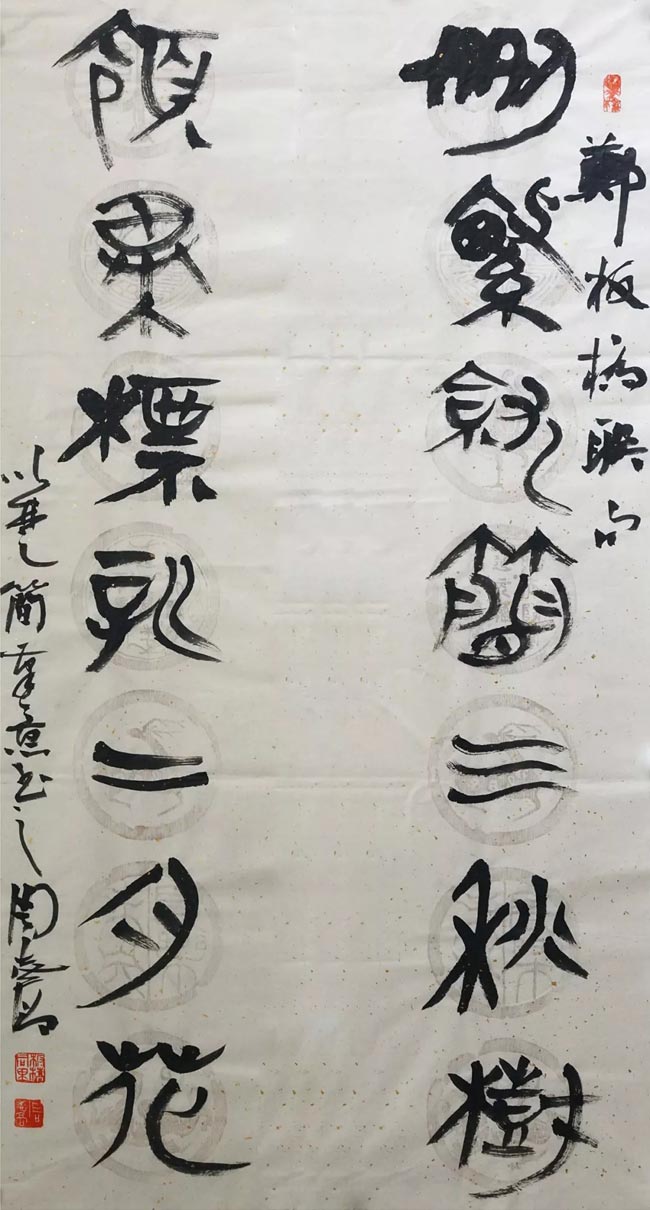 鄭板橋聯句
刪繁就簡三秋樹
領異標新二月花
以楚簡筆意書之
板橋同里